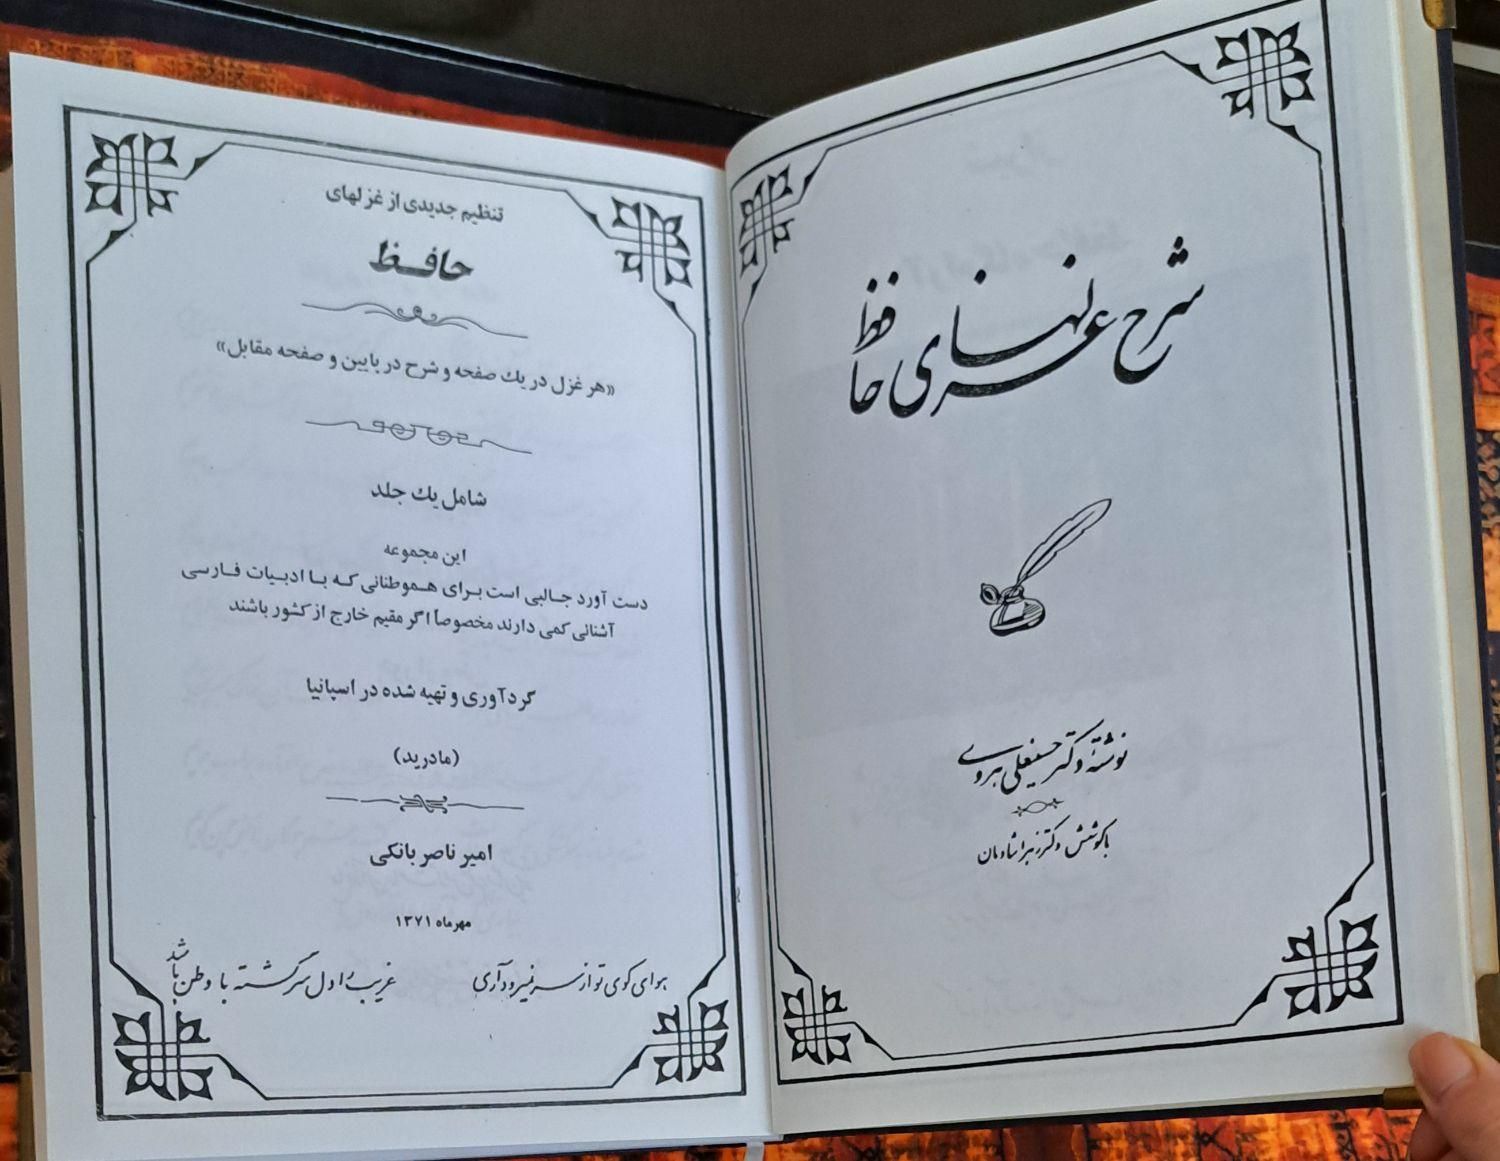 شرح غزلهای حافظ
نوشته دکتر حسینعلی هروی
باکوشش دکتر زهرا شادمان
تنظیم جدیدی از غزلهای
حافظ
«هر غزل در یك صفحه و شرح در پایین و صفحه مقابل»
شامل یك جلد
این مجموعه
دست آورد جالبی است برای هموطنانی که با ادبیات فارسی
آشنائی کمی دارند مخصوصاً اگر مقیم خارج از کشور باشند
گردآوری و تهیه شده در اسپانیا
(مادرید)
امیر ناصر بانکی
مهرماه ۱۳۷۱
هوای کوی تو از سر نمیرود آری غریب را دل سرگشته با وطن باشد